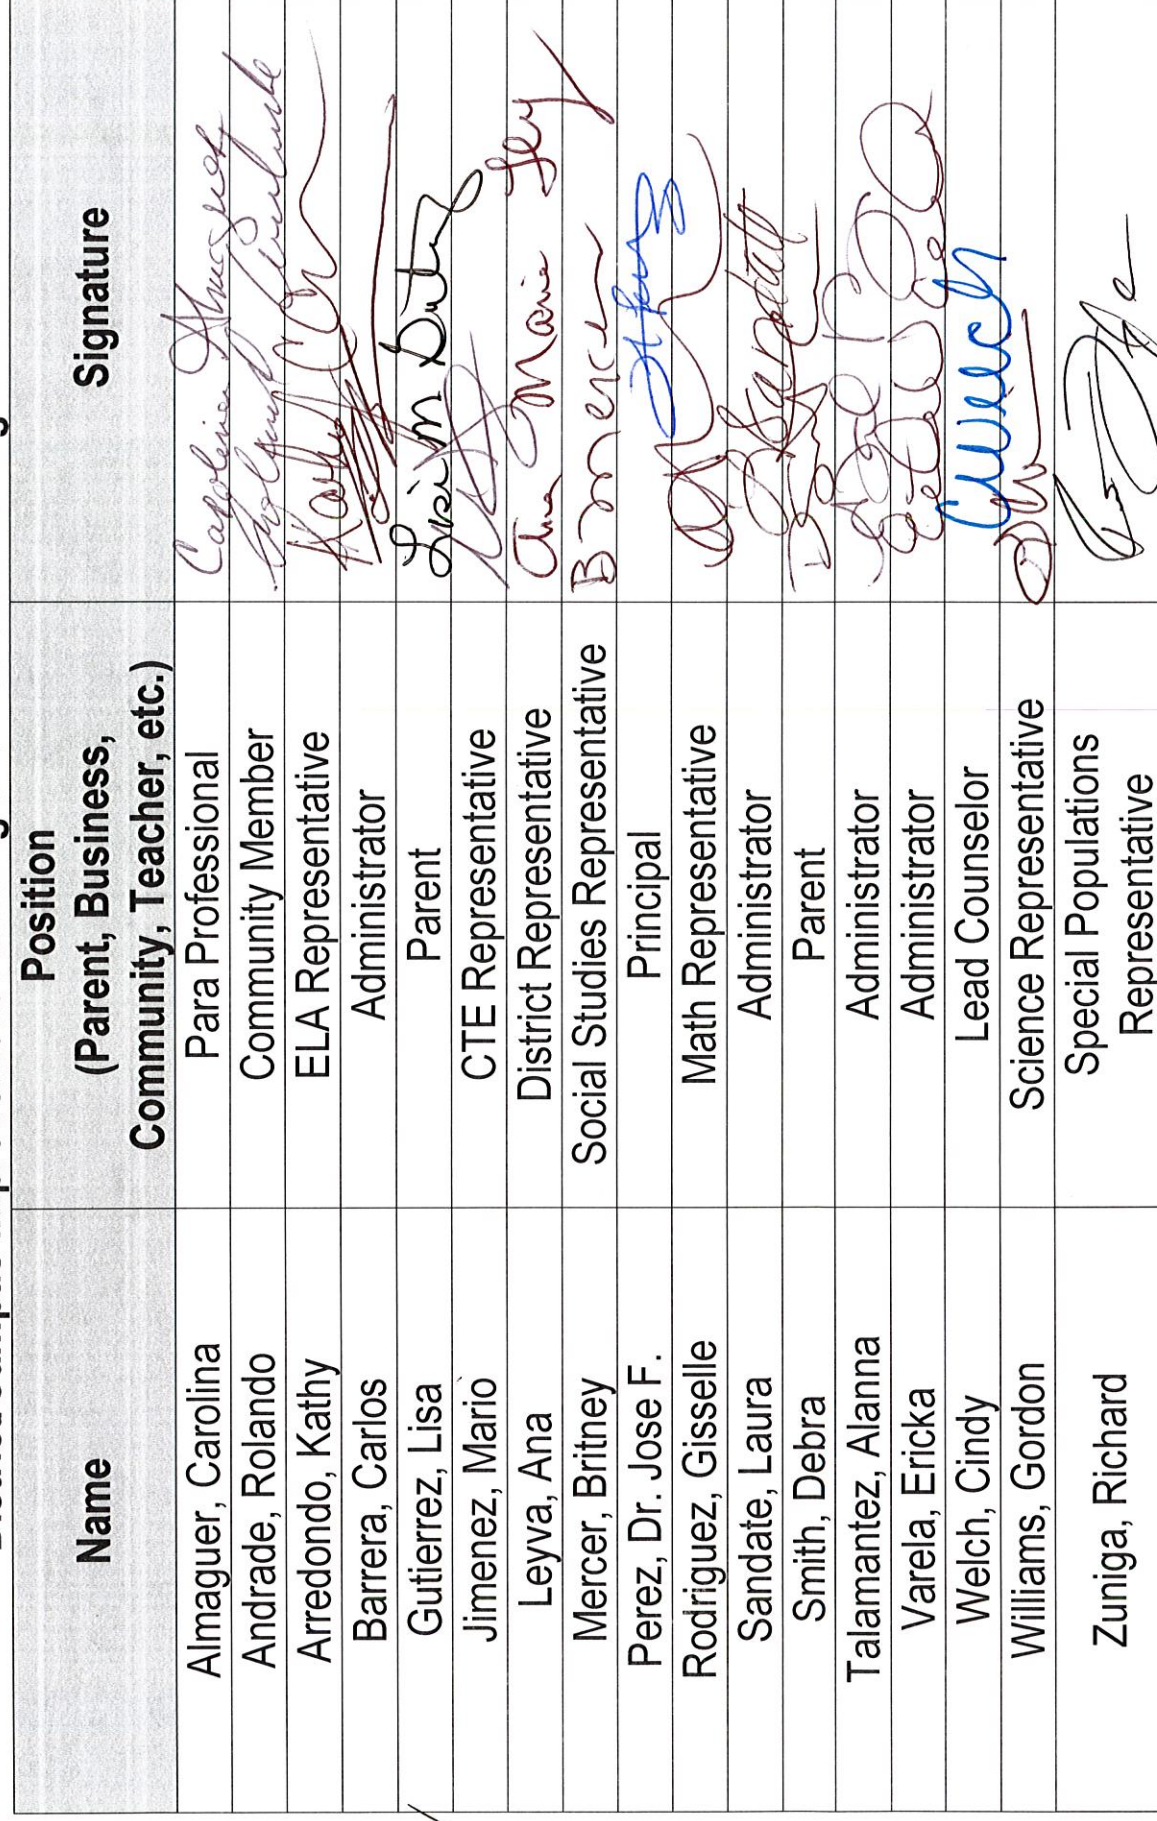 Name
Position
(Parent, Business,
Community, Teacher, etc.)
Signature
Almaguer, Carolina Para Professional Carolina Almaguer
Andrade, Rolando Community Member
Arredondo, Kathy ELA Representative Kathy
Barrera, Carlos Administrator
Gutierrez, Lisa Parent Lisa M
Jimenez, Mario CTE Representative
Leyva, Ana District Representative Ana Marie
Mercer, Britney Social Studies Representative B Mercer
Perez, Dr. Jose F. Principal
Rodriguez, Gisselle Math Representative
Sandate, Laura Administrator
Smith, Debra Parent
Talamantez, Alanna Administrator
Varela, Ericka Administrator
Welch, Cindy Lead Counselor CWelch
Williams, Gordon Science Representative
Zuniga, Richard Special Populations
Representative